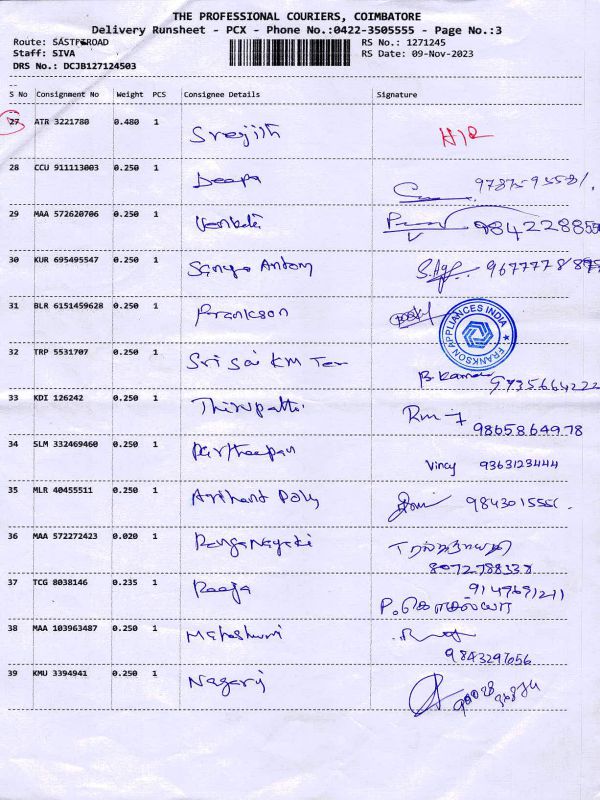 THE PROFESSIONAL COURIERS, COIMBATORE
Delivery Runsheet - PCX - Phone No.:0422-3505555 - Page No.:3
Route: SASTRIROAD RS No.: 1271245
Staff: SIVA RS Date: 09-Nov-2023
DRS No.: DCJB127124503
S No Consignment No Weight PCS Consignee Details Signature
27 ATR 3221780 0.480 1 Srejith
28 CCU 911113003 0.250 1 Deepa
29 MAA 572620706 0.250 1
30 KUR 695495547 0.250 1 Antony
31 BLR 6151459628 0.250 1 Frankson
FRANKSON APPLIANCES INDIA
32 TRP 5531707 0.250 1 Sri Sai KM Tex
9735664222
33 KDI 126242 0.250 1 Thirupathi
9865864978
34 SLM 332469460 0.250 1 Vincy 9363123444
35 MLR 40455511 0.250 1 Arihant Poly
36 MAA 572272423 0.020 1 RangaNayaki
8072788338
37 TCG 8038146 0.235 1 Raaja
38 MAA 103963487 0.250 1
9843297656
39 KMU 3394941 0.250 1 Nagaraj